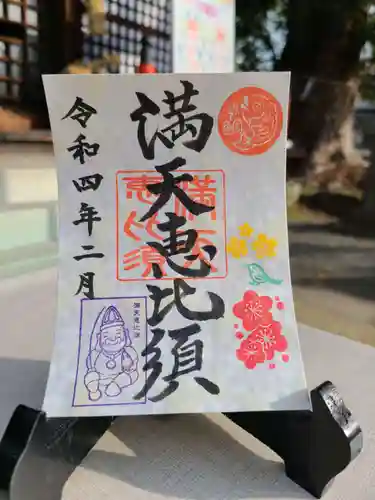 満天恵比須
令和四年二月
満天
恵比須
満天恵比須